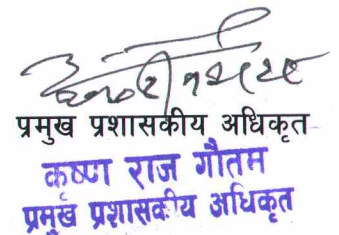 प्रमुख प्रशासकीय अधिकृत
कृष्ण राज गौतम
प्रमुख प्रशासकीय अधिकृत